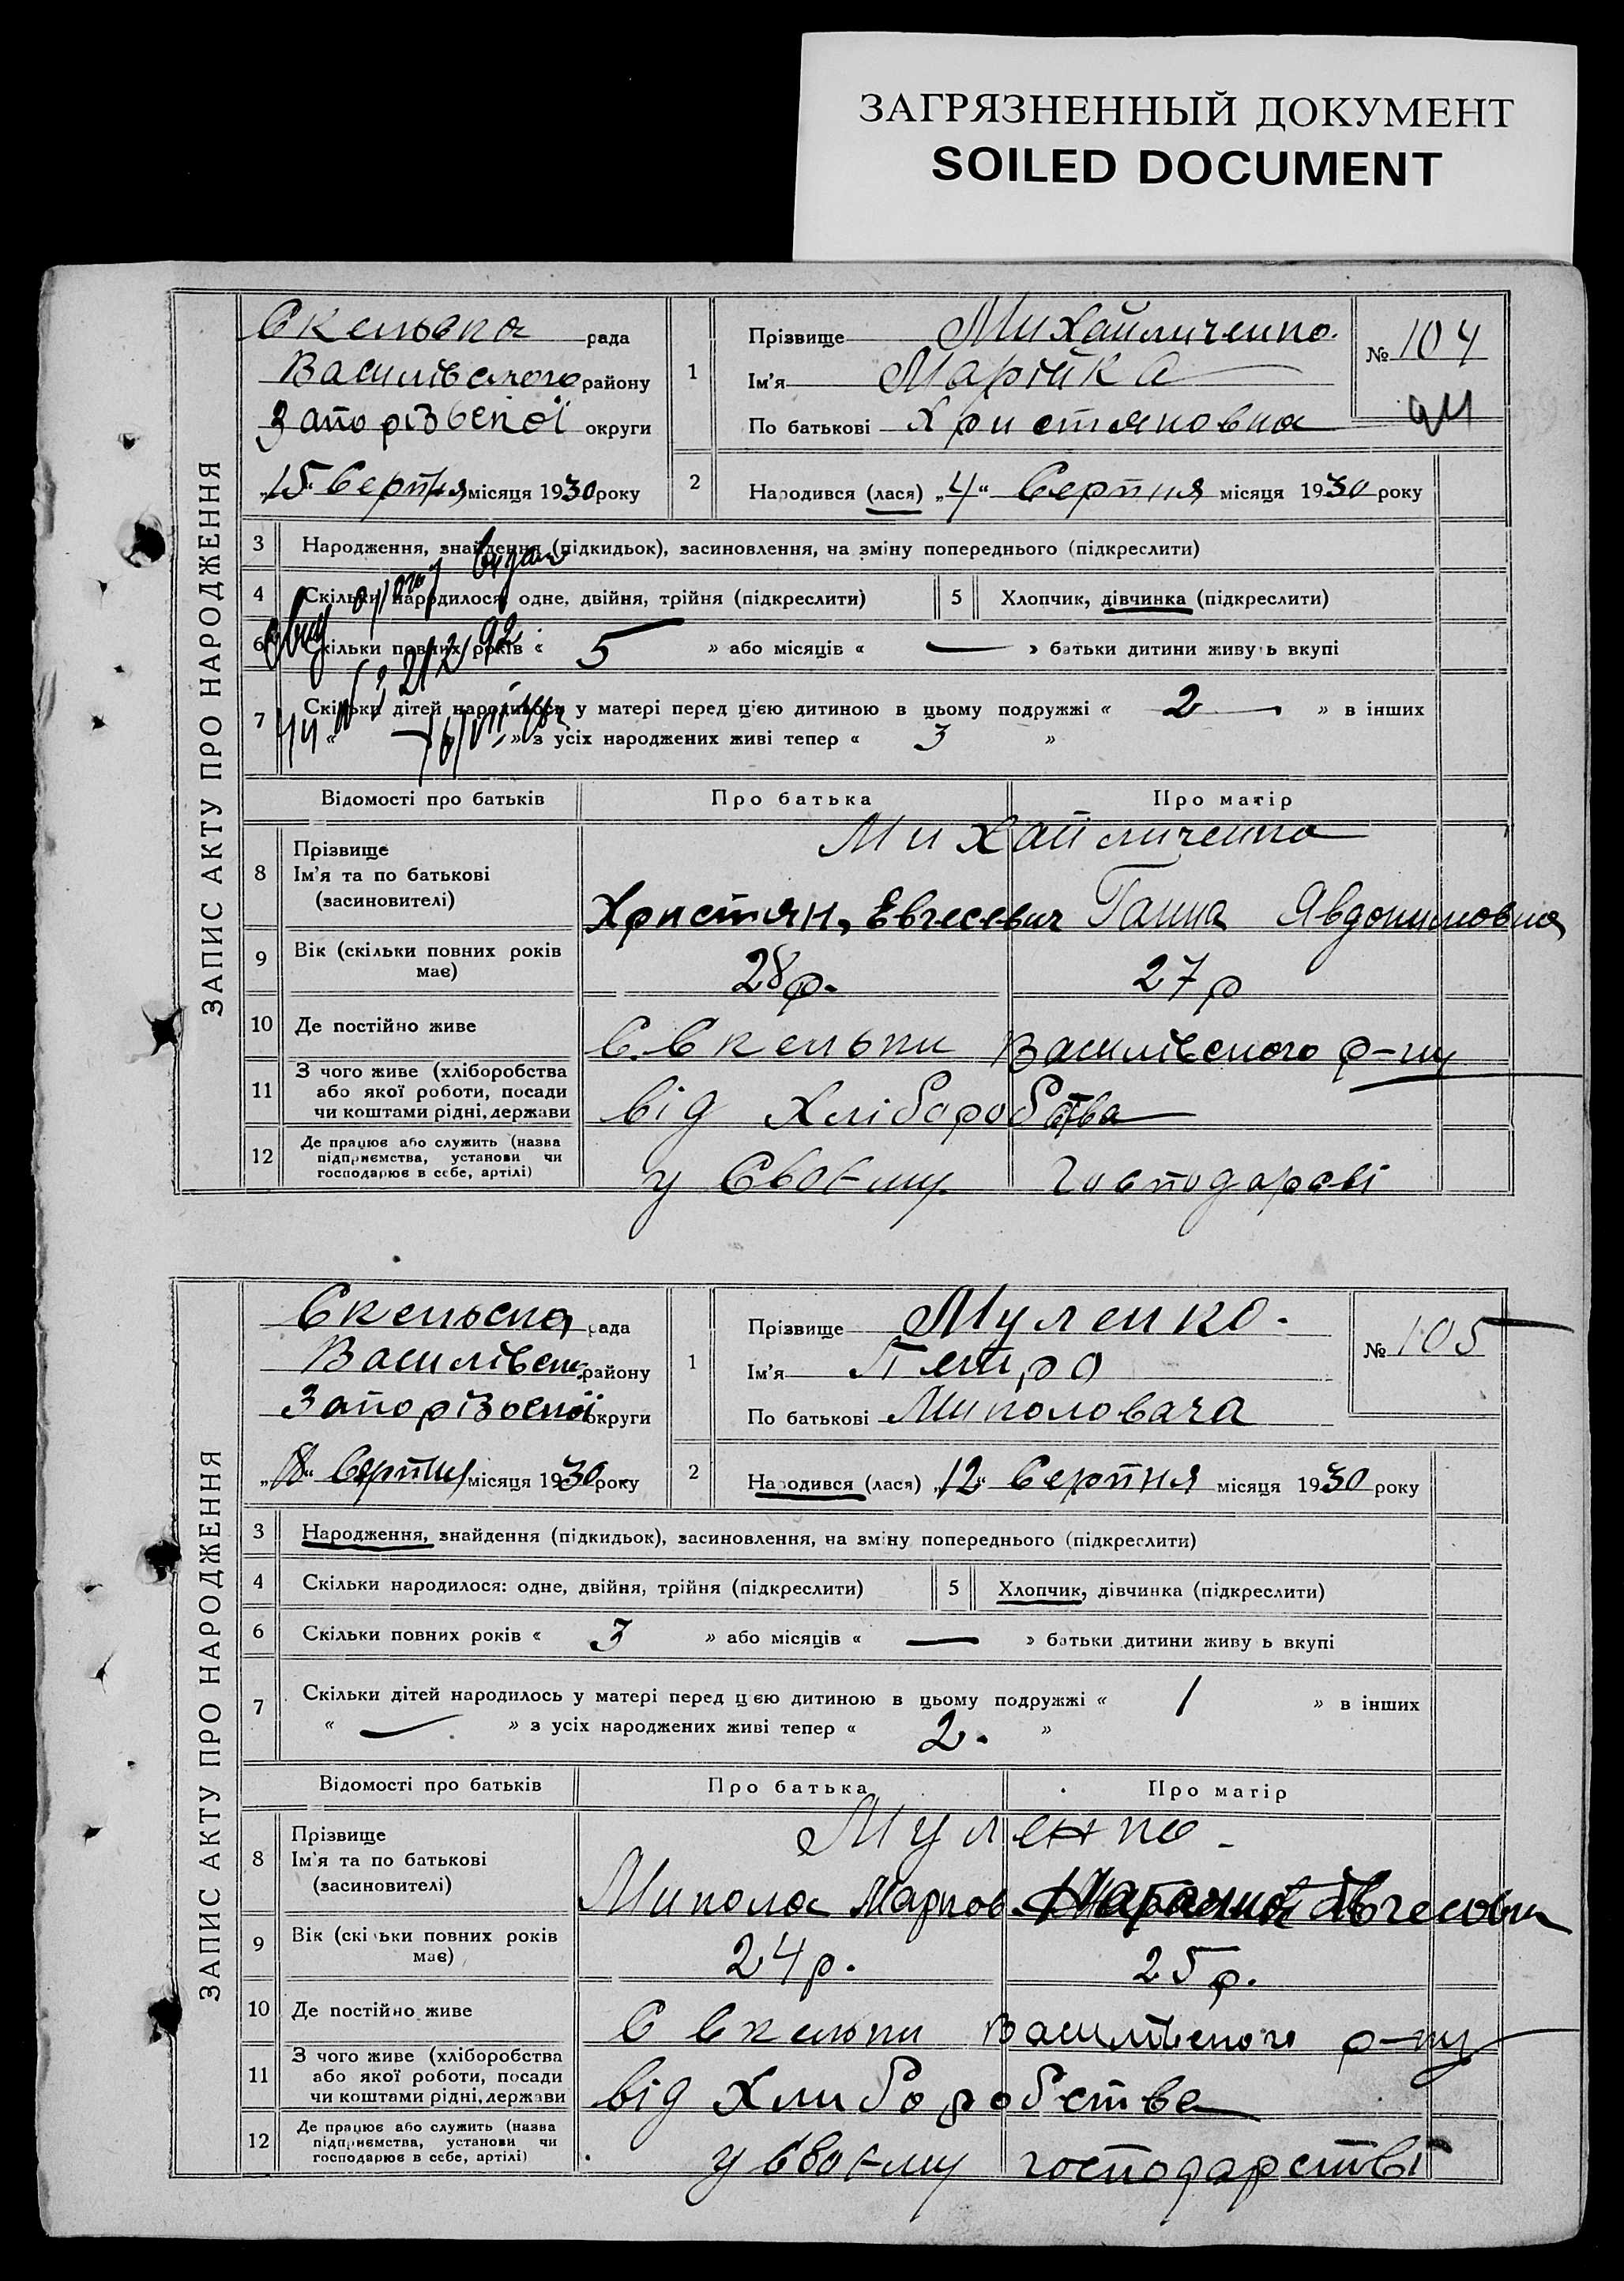 ЗАГРЯЗНЕННЫЙ ДОКУМЕНТ
SOILED DOCUMENT
ЗАПИС АКТУ ПРО НАРОДЖЕННЯ
Скельська рада
Василівського району
Запорізської округи
„15“ Серпня місяця 1930 року
1 Прізвище Михайличенко.
Ім'я Марійка
По батькові Христяновна
№ 104
2 Народився (лася) „4“ Серпня місяця 1930 року
3 Народження, знайдення (підкидьок), засиновлення, на зміну попереднього (підкреслити)
4 Скільки народилося: одне, двійня, трійня (підкреслити) 5 Хлопчик, дівчинка (підкреслити)
6 Скільки повних років « 5 » або місяців « — » батьки дитини живуть вкупі
7 Скільки дітей народилось у матері перед цією дитиною в цьому подружжі « 2 » в інших
« » з усіх народжених живі тепер « 3 »
Відомості про батьків Про батька Про матір
8 Прізвище Ім'я та по батькові (засновителі)
Михайличенко
Христян, Евгесевич Ганна Явдокимовна
9 Вік (скільки повних років має) 28 р. 27 р
10 Де постійно живе С. Скельки Василівського р-ну
11 З чого живе (хліборобства або якої роботи, посади чи коштами рідні, держави від Хліборобства
12 Де працює або служить (назва підприємства, установи чи господарює в себе, артілі) у Своєму
ЗАПИС АКТУ ПРО НАРОДЖЕННЯ
Скельска рада
Василівськ. району
Запорізської округи
„18“ Серпня місяця 1930 року
1 Прізвище Муленко.
Ім'я Петро
По батькові Миколовача
№ 105
2 Народився (лася) „12“ Серпня місяця 1930 року
3 Народження, знайдення (підкидьок), засиновлення, на зміну попереднього (підкреслити)
4 Скільки народилося: одне, двійня, трійня (підкреслити) 5 Хлопчик, дівчинка (підкреслити)
6 Скільки повних років « 3 » або місяців « — » батьки дитини живу ь вкупі
7 Скільки дітей народилось у матері перед цією дитиною в цьому подружжі « 1 » в інших
« — » з усіх народжених живі тепер « 2. »
Відомості про батьків Про батька Про матір
8 Прізвище Ім'я та по батькові (засиновителі)
Муленко.
Микола Марков
9 Вік (скільки повних років має) 24 р. 25 р.
10 Де постійно живе С Скельки Василівського р-ну
11 З чого живе (хліборобства або якої роботи, посади чи коштами рідні, держави від Хлиборобства
12 Де працює або служить (назва підприємства, установи чи господарює в себе, артілі) у своєму господарстві